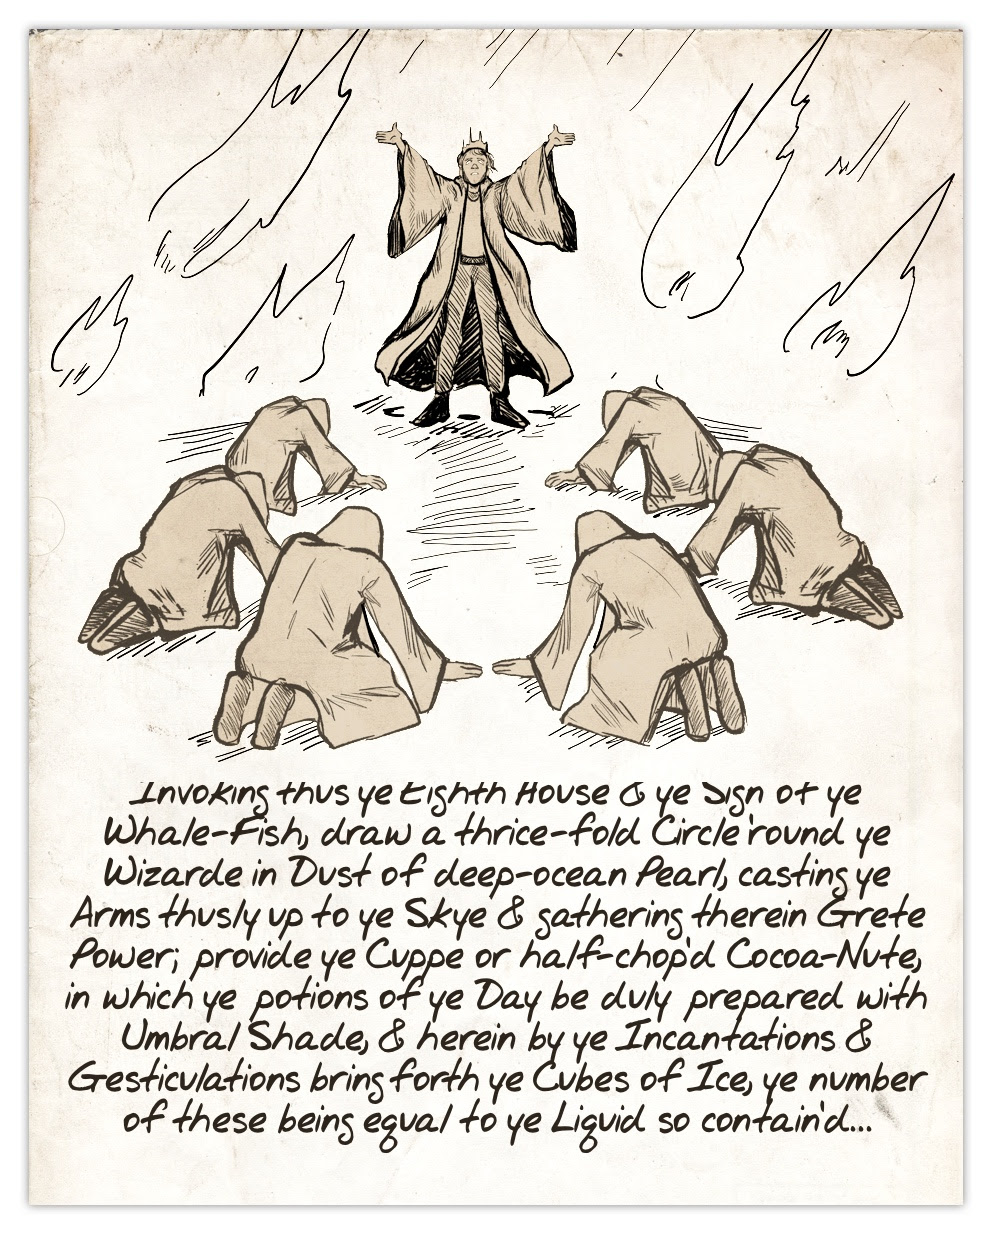 Invoking thus ye Eighth House & ye Sign of ye
Whale-Fish, draw a thrice-fold Circle 'round ye
Wizarde in Dust of deep-ocean Pearl, casting ye
Arms thusly up to ye Skye & gathering therein Grete
Power; provide ye Cuppe or half-chop'd Cocoa-Nute,
in which ye potions of ye Day be duly prepared with
Umbral Shade, & herein by ye Incantations &
Gesticulations bring forth ye Cubes of Ice, ye number
of these being equal to ye Liquid so contain'd...